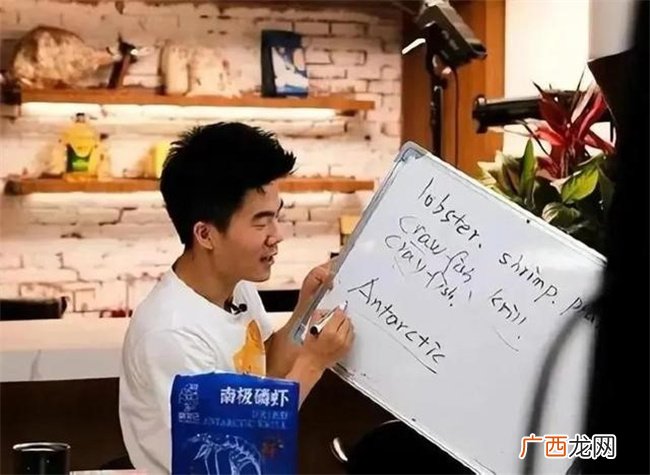 lobster. shrimp. pra
crawfish
crayfish. krill.
Antarctic
南极磷虾
DRIED
ANTARCTIC KRILL
广西龙网